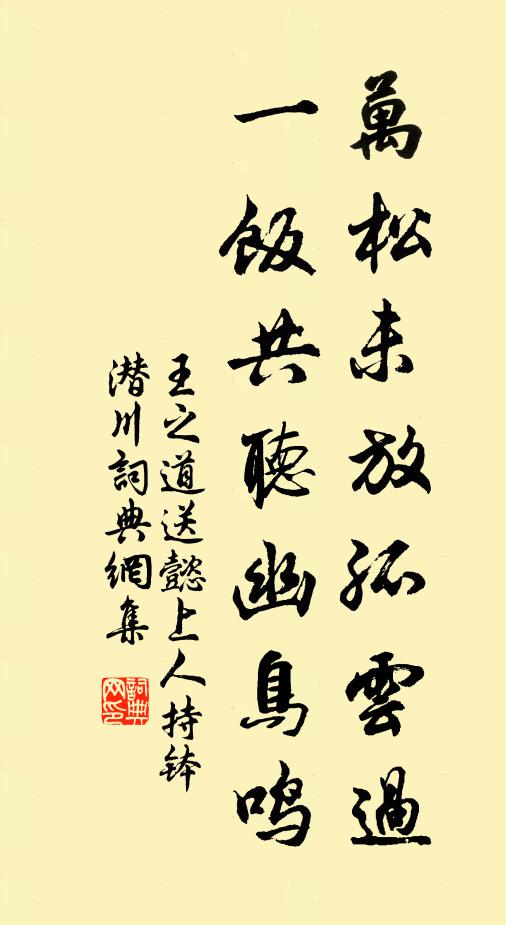 萬松未放孤雲過
一飯共聽幽鳥鳴
王之道送懿上人持鉢
潛川詞典網集
詞典
网印